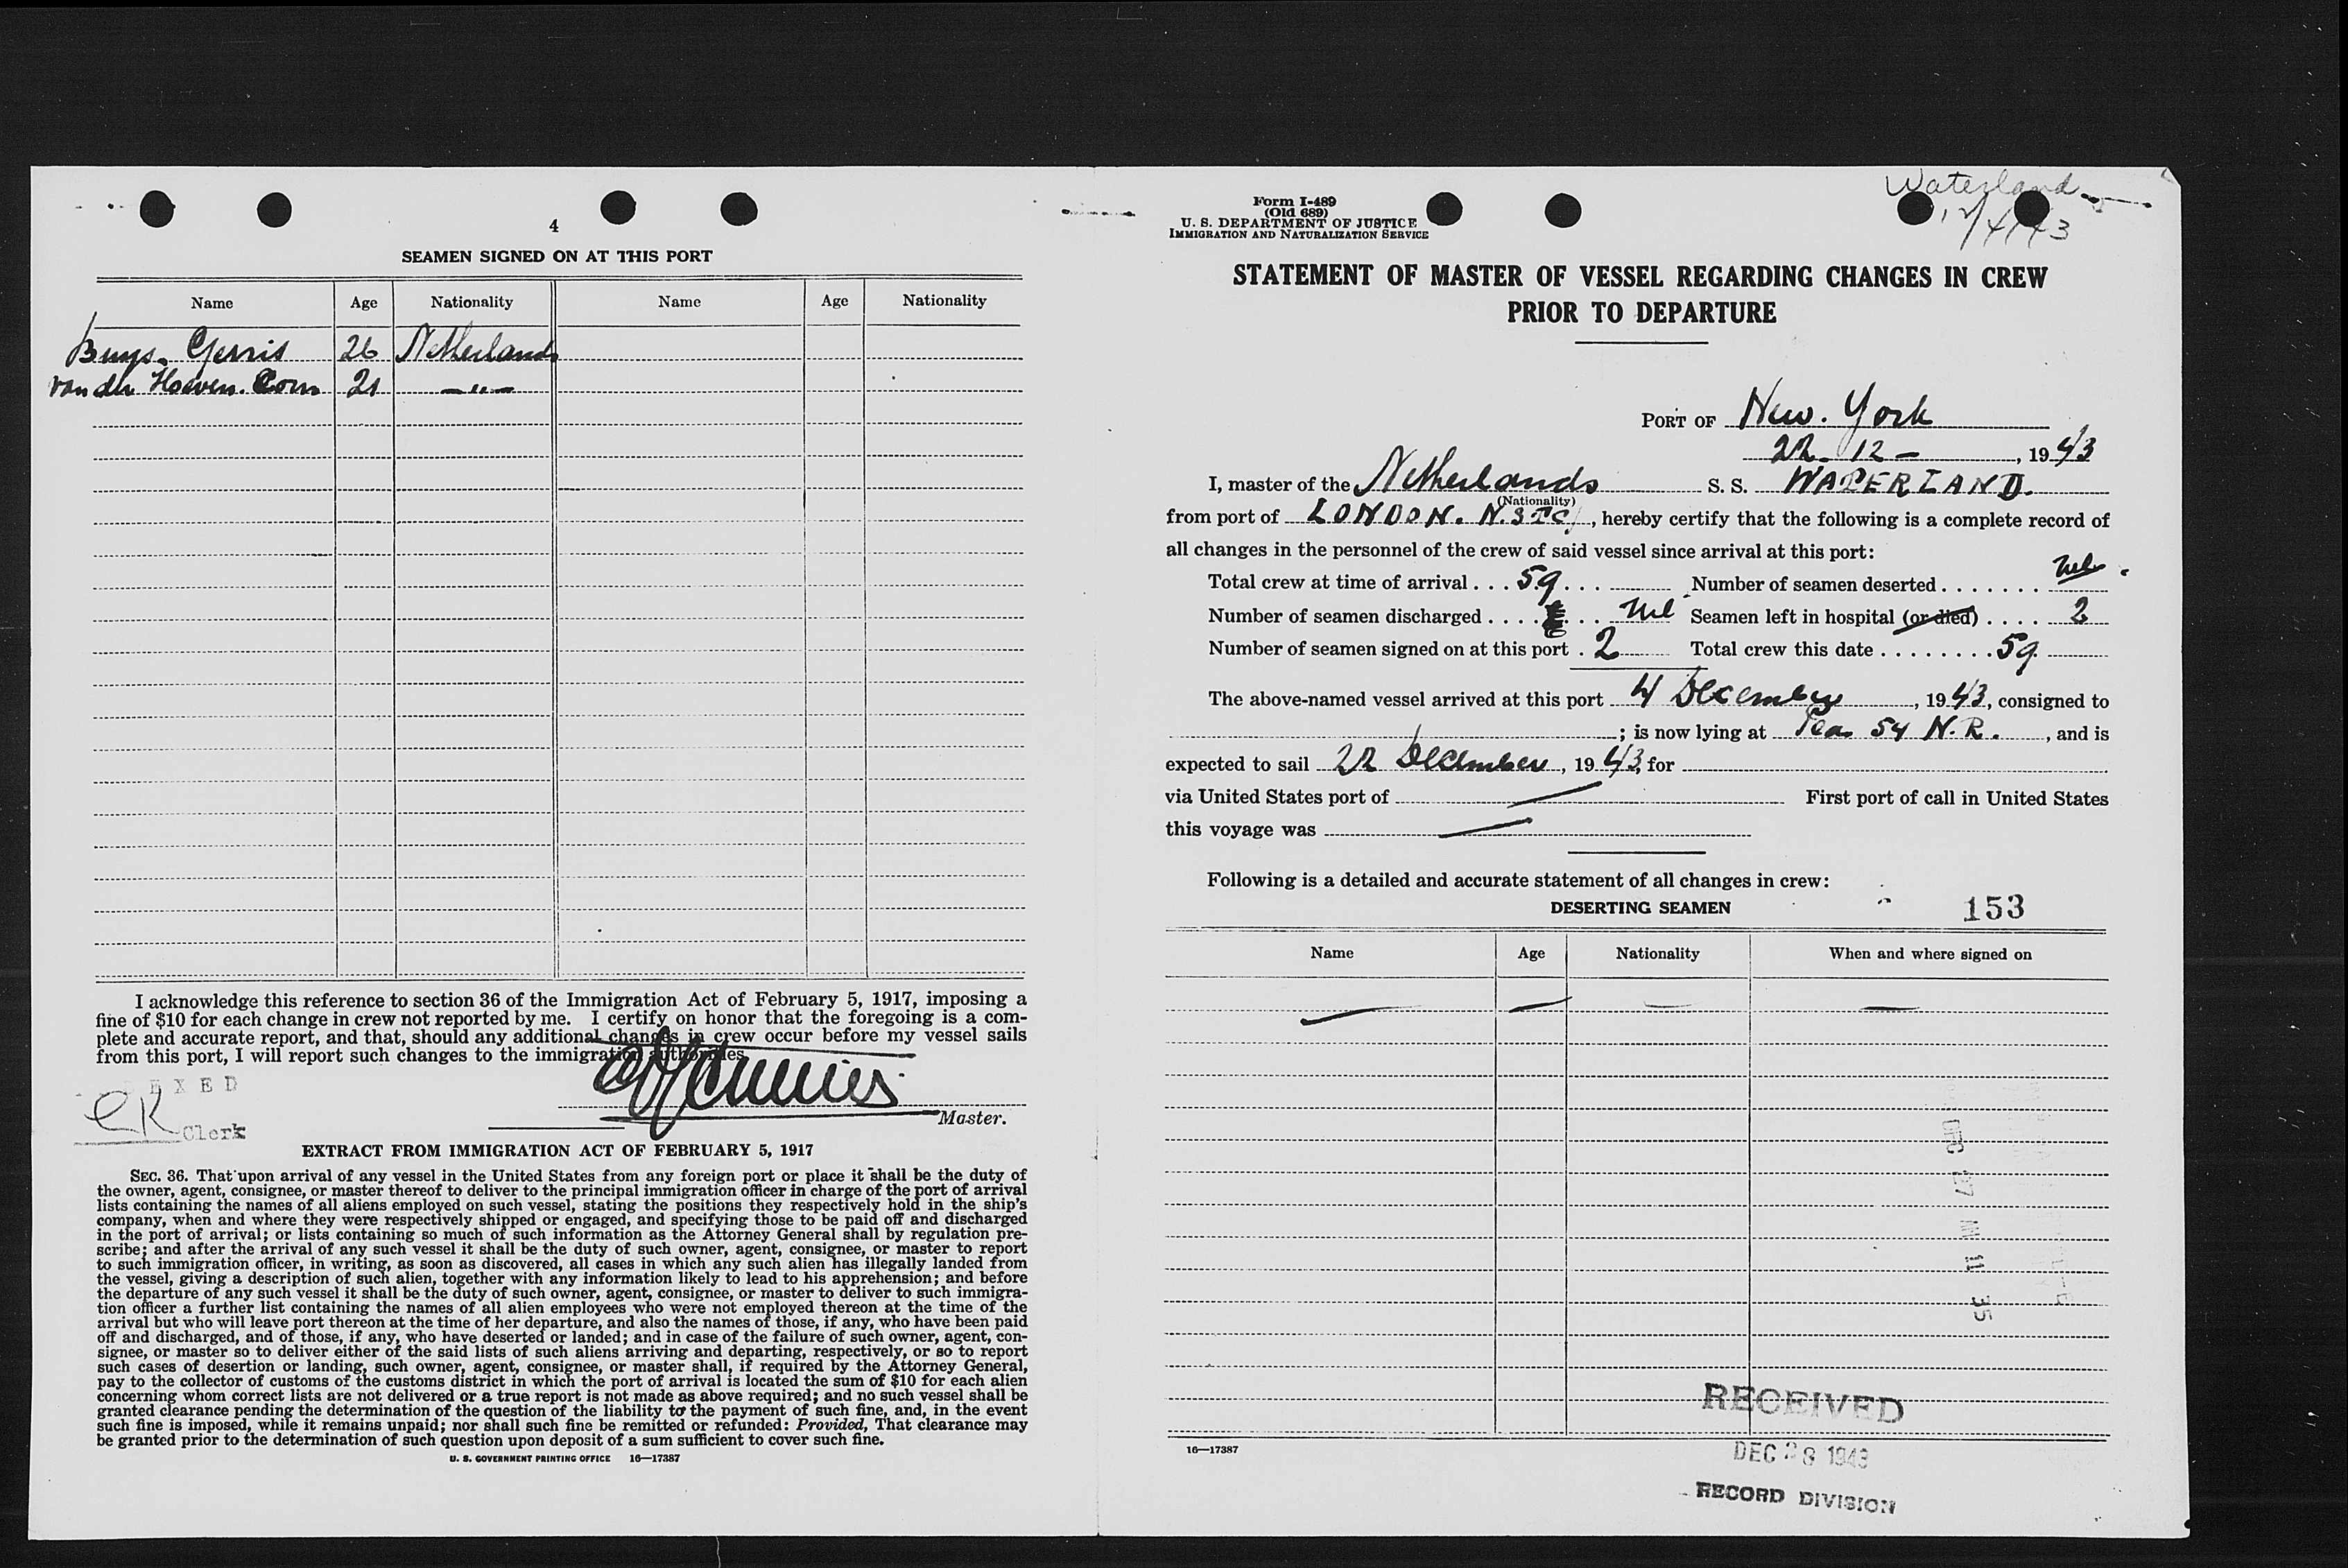 4
SEAMEN SIGNED ON AT THIS PORT
Name Age Nationality Name Age Nationality
Buys, Gerrit 26 Netherlands
van der Hoeven. Corn 21 —"—
I acknowledge this reference to section 36 of the Immigration Act of February 5, 1917, imposing a
fine of $10 for each change in crew not reported by me. I certify on honor that the foregoing is a com-
plete and accurate report, and that, should any additional changes in crew occur before my vessel sails
from this port, I will report such changes to the immigration authorities.
EXED
CK Clerk
Master.
EXTRACT FROM IMMIGRATION ACT OF FEBRUARY 5, 1917
SEC. 36. That upon arrival of any vessel in the United States from any foreign port or place it shall be the duty of
the owner, agent, consignee, or master thereof to deliver to the principal immigration officer in charge of the port of arrival
lists containing the names of all aliens employed on such vessel, stating the positions they respectively hold in the ship's
company, when and where they were respectively shipped or engaged, and specifying those to be paid off and discharged
in the port of arrival; or lists containing so much of such information as the Attorney General shall by regulation pre-
scribe; and after the arrival of any such vessel it shall be the duty of such owner, agent, consignee, or master to report
to such immigration officer, in writing, as soon as discovered, all cases in which any such alien has illegally landed from
the vessel, giving a description of such alien, together with any information likely to lead to his apprehension; and before
the departure of any such vessel it shall be the duty of such owner, agent, consignee, or master to deliver to such immigra-
tion officer a further list containing the names of all alien employees who were not employed thereon at the time of the
arrival but who will leave port thereon at the time of her departure, and also the names of those, if any, who have been paid
off and discharged, and of those, if any, who have deserted or landed; and in case of the failure of such owner, agent, con-
signee, or master so to deliver either of the said lists of such aliens arriving and departing, respectively, or so to report
such cases of desertion or landing, such owner, agent, consignee, or master shall, if required by the Attorney General,
pay to the collector of customs of the customs district in which the port of arrival is located the sum of $10 for each alien
concerning whom correct lists are not delivered or a true report is not made as above required; and no such vessel shall be
granted clearance pending the determination of the question of the liability to the payment of such fine, and, in the event
such fine is imposed, while it remains unpaid; nor shall such fine be remitted or refunded: Provided, That clearance may
be granted prior to the determination of such question upon deposit of a sum sufficient to cover such fine.
U. S. GOVERNMENT PRINTING OFFICE 16—17387
Form I-489
(Old 689)
U. S. DEPARTMENT OF JUSTICE
IMMIGRATION AND NATURALIZATION SERVICE
Waterland
12/4/43
STATEMENT OF MASTER OF VESSEL REGARDING CHANGES IN CREW
PRIOR TO DEPARTURE
PORT OF New. York
22-12-, 1943
I, master of the Netherlands S. S. WATERLAND.
(Nationality)
from port of LONDON. , hereby certify that the following is a complete record of
all changes in the personnel of the crew of said vessel since arrival at this port:
Total crew at time of arrival . . . 59 . . . Number of seamen deserted . . . . . . . nil
Number of seamen discharged . . . . . . . nil Seamen left in hospital (or died) . . . . 2
Number of seamen signed on at this port . 2 Total crew this date . . . . . . . . 59
The above-named vessel arrived at this port 4 December, 1943, consigned to
; is now lying at 54 N.R., and is
expected to sail 22 December, 1943, for
via United States port of — First port of call in United States
this voyage was —
Following is a detailed and accurate statement of all changes in crew:
DESERTING SEAMEN 153
Name Age Nationality When and where signed on
— — — —
DEC 27 AM 11 35
RECEIVED
DEC 28 1943
RECORD DIVISION
16—17387